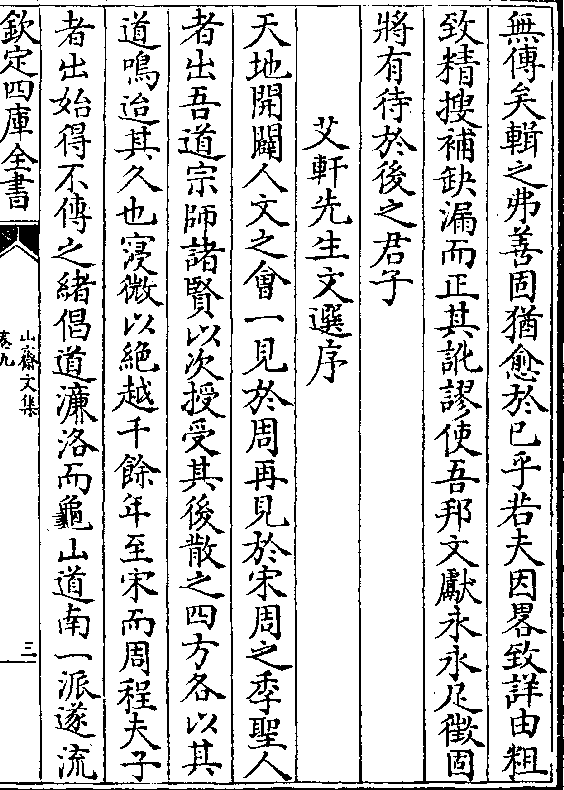 無傳矣輯之弗善固猶愈於已乎若夫因畧致詳由粗
致精搜補缺漏而正其訛謬使吾邦文獻永永足徵固
將有待於後之君子
艾軒先生文選序
天地開闢人文之會一見於周再見於宋周之季聖人
者出吾道宗師諸賢以次授受其後散之四方各以其
道鳴迨其久也寖微以絶越千餘年至宋而周程夫子
者出始得不傳之緒倡道濂洛而龜山道南一派遂流
欽定四庫全書
山齋文集
卷九
三